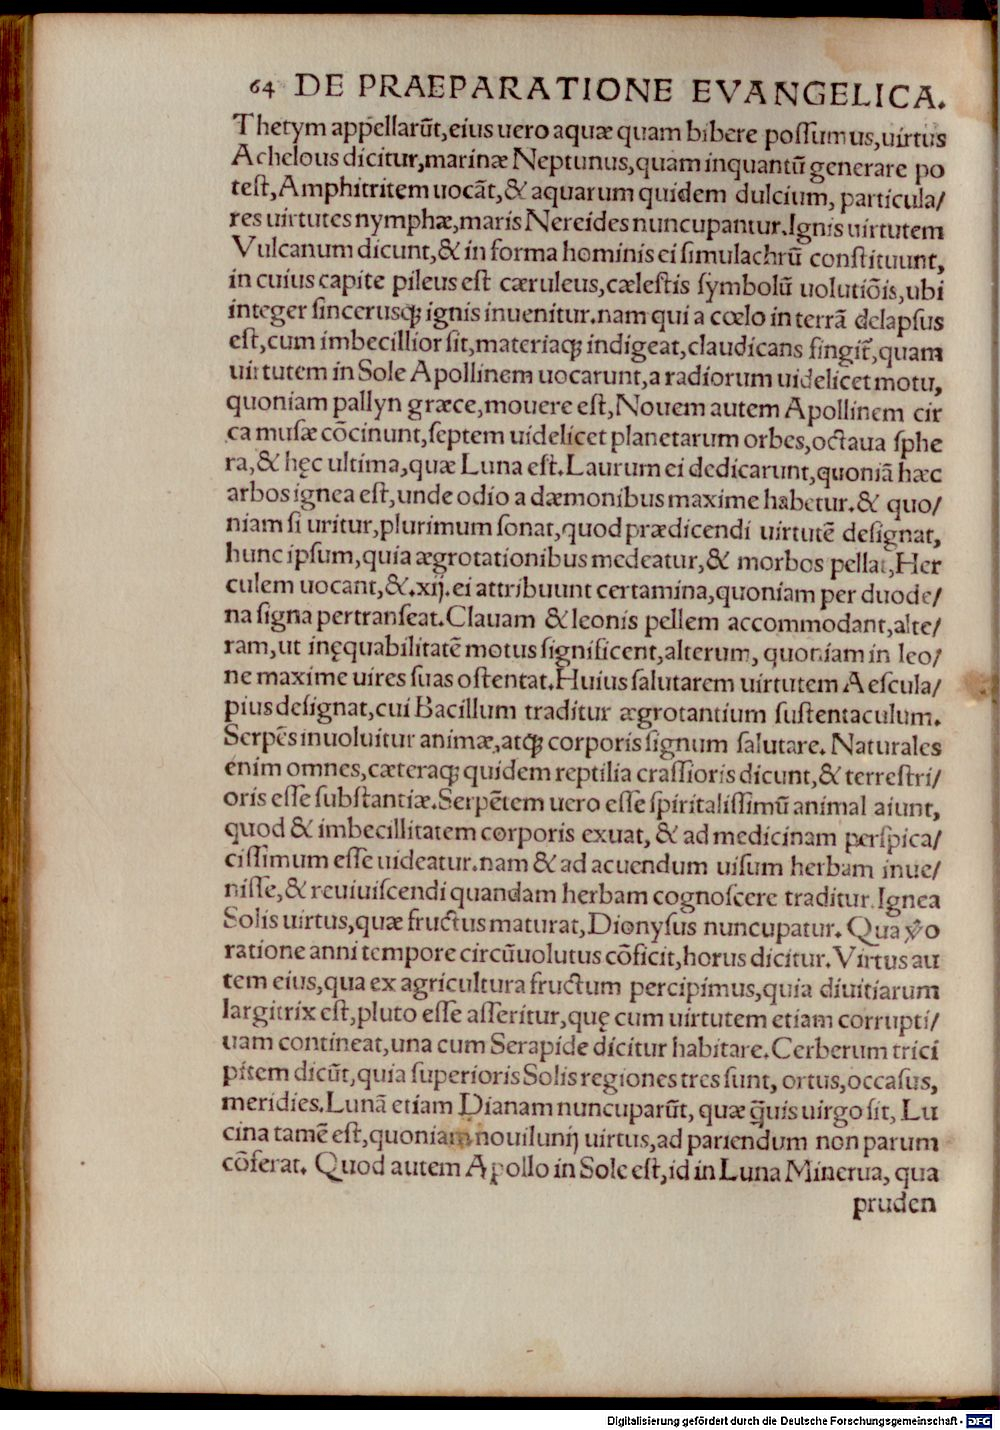 64 DE PRAEPARATIONE EVANGELICA.
Thetym appellarūt,eius uero aquæ quam bibere poſſumus,uirtus
Achelous dicitur,marinæ Neptunus,quam inquantū generare po
teſt,Amphitritem uocāt,& aquarum quidem dulcium, particula/
res uirtutes nymphæ,maris Nereides nuncupantur.Ignis uirtutem
Vulcanum dicunt,& in forma hominis ei ſimulachrū conſtituunt,
in cuius capite pileus eſt cæruleus,cæleſtis ſymbolū uolutiōis,ubi
integer ſincerusq; ignis inuenitur.nam qui a cœlo in terrā delapſus
eſt,cum imbecillior ſit,materiaq; indigeat,claudicans fingit̃,quam
uirtutem in Sole Apollinem uocarunt,a radiorum uidelicet motu,
quoniam pallyn græce,mouere eſt,Nouem autem Apollinem cir
ca muſæ cōcinunt,ſeptem uidelicet planetarum orbes,octaua ſphe
ra,& hęc ultima,quæ Luna eſt.Laurum ei dedicarunt,quoniā hæc
arbos ignea eſt,unde odio a dæmonibus maxime habetur.& quo/
niam ſi uritur,plurimum ſonat,quod prædicendi uirtutē deſignat,
hunc ipſum,quia ægrotationibus medeatur,& morbos pellat,Her
culem uocant,&.xij.ei attribuunt certamina,quoniam per duode/
na ſigna pertranſeat.Clauam & leonis pellem accommodant,alte/
ram,ut inęquabilitatē motus ſignificent,alterum, quoniam in leo/
ne maxime uires ſuas oſtentat.Huius ſalutarem uirtutem Aeſcula/
pius deſignat,cui Bacillum traditur ægrotantium ſuſtentaculum.
Serpēs inuoluitur animæ,atq; corporis ſignum ſalutare. Naturales
enim omnes,cæteraq; quidem reptilia craſſioris dicunt,& terreſtri/
oris eſſe ſubſtantiæ.Serpētem uero eſſe ſpiritaliſſimū animal aiunt,
quod & imbecillitatem corporis exuat, & ad medicinam perſpica/
ciſſimum eſſe uideatur.nam & ad acuendum uiſum herbam inue/
niſſe,& reuiuiſcendi quandam herbam cognoſcere traditur.Ignea
Solis uirtus,quæ fructus maturat,Dionyſus nuncupatur. Qua ꝟo
ratione anni tempore circūuolutus cōficit,horus dicitur.Virtus au
tem eius,qua ex agricultura fructum percipimus,quia diuitiarum
largitrix eſt,pluto eſſe aſſeritur,quę cum uirtutem etiam corrupti/
uam contineat,una cum Serapide dicitur habitare.Cerberum trici
pitem dicūt,quia ſuperioris Solis regiones tres ſunt, ortus,occaſus,
meridies.Lunā etiam Dianam nuncuparūt, quæ q̃uis uirgo ſit, Lu
cina tamē eſt,quoniam nouilunij uirtus,ad pariendum non parum
cōferat. Quod autem Apollo in Sole eſt,id in Luna Minerua, qua
pruden
Digitalisierung gefördert durch die Deutsche Forschungsgemeinschaft - DFG